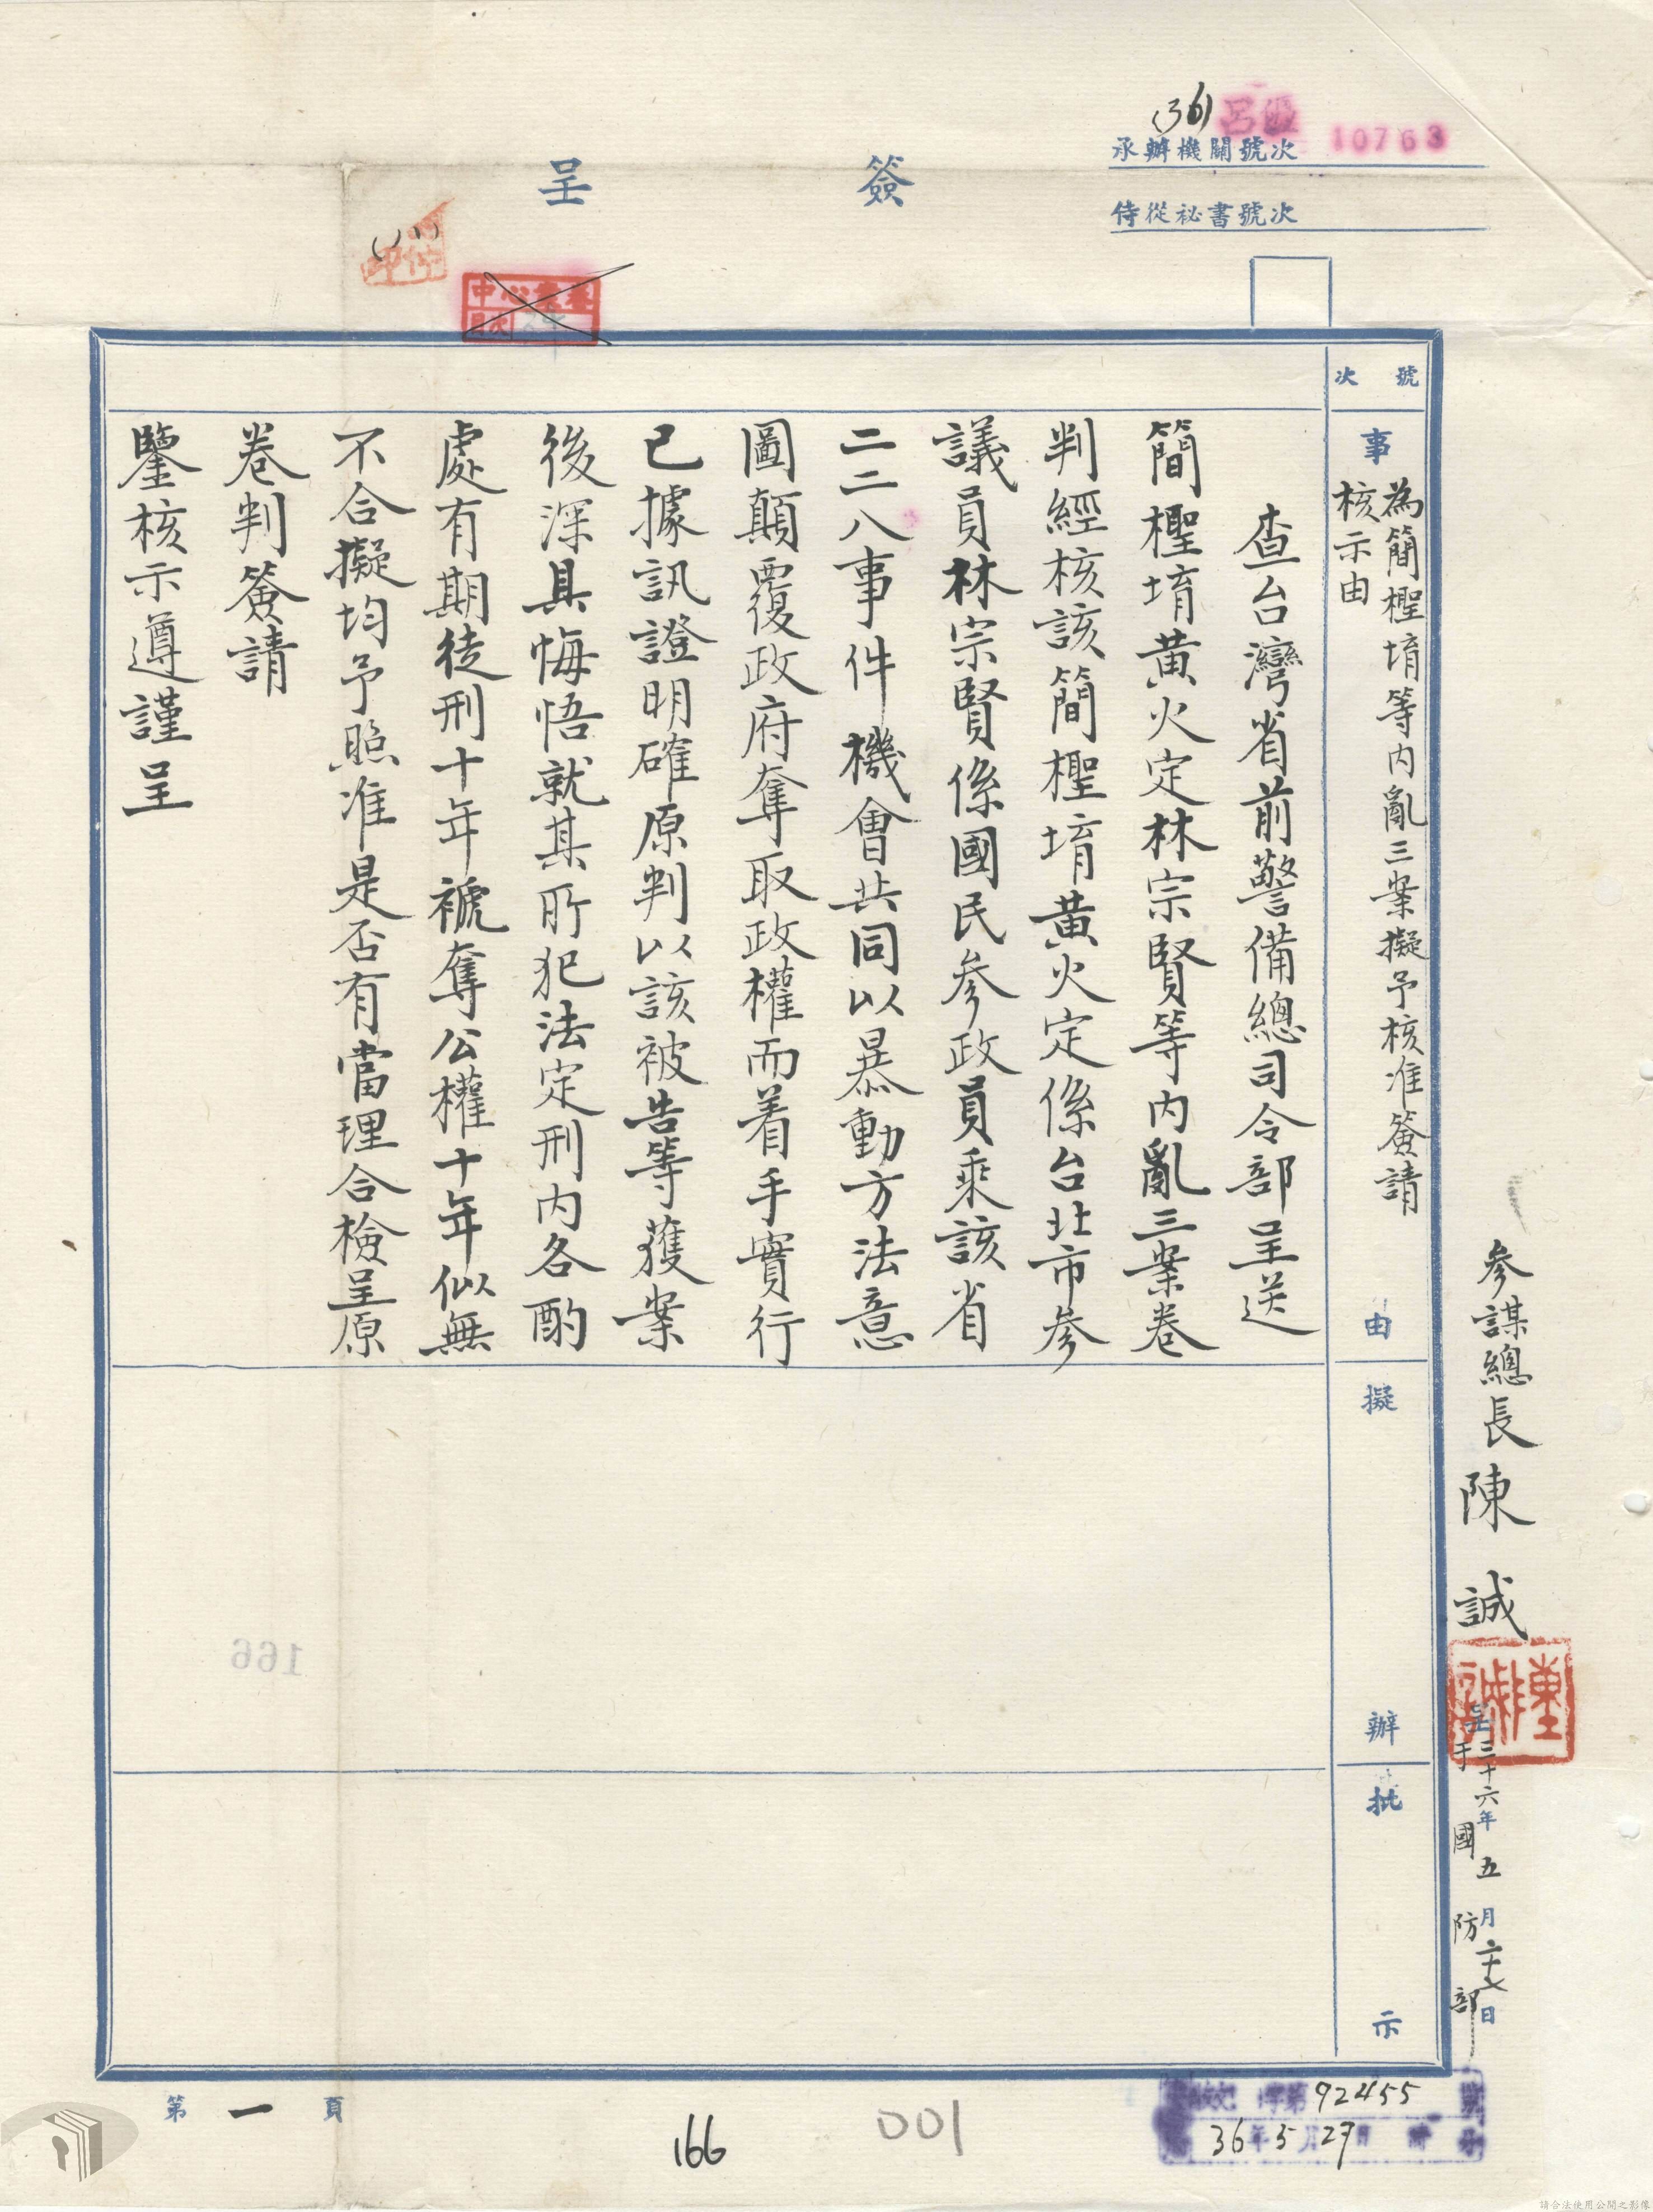 (36)
呂
10763
承辦機關號次
侍從祕書號次
簽呈
號次
事由
為簡檉堉等內亂三案擬予核准簽請
核示由
查台灣省前警備總司令部呈送
簡檉堉黃火定林宗賢等內亂三案卷
判經核該簡檉堉黃火定係台北市參
議員林宗賢係國民參政員乘該省
二二八事件機會共同以暴動方法意
圖顛覆政府奪取政權而着手實行
已據訊證明確原判以該被告等獲案
後深具悔悟就其所犯法定刑內各酌
處有期徒刑十年褫奪公權十年似無
不合擬均予照准是否有當理合檢呈原
卷判簽請
鑒核示遵謹呈
擬辦
批示
參謀總長陳誠
三十六年五月二十七日
于國防部
第一頁
166
001
字第92455號
36年5月27日時
166
請合法使用公開之影像